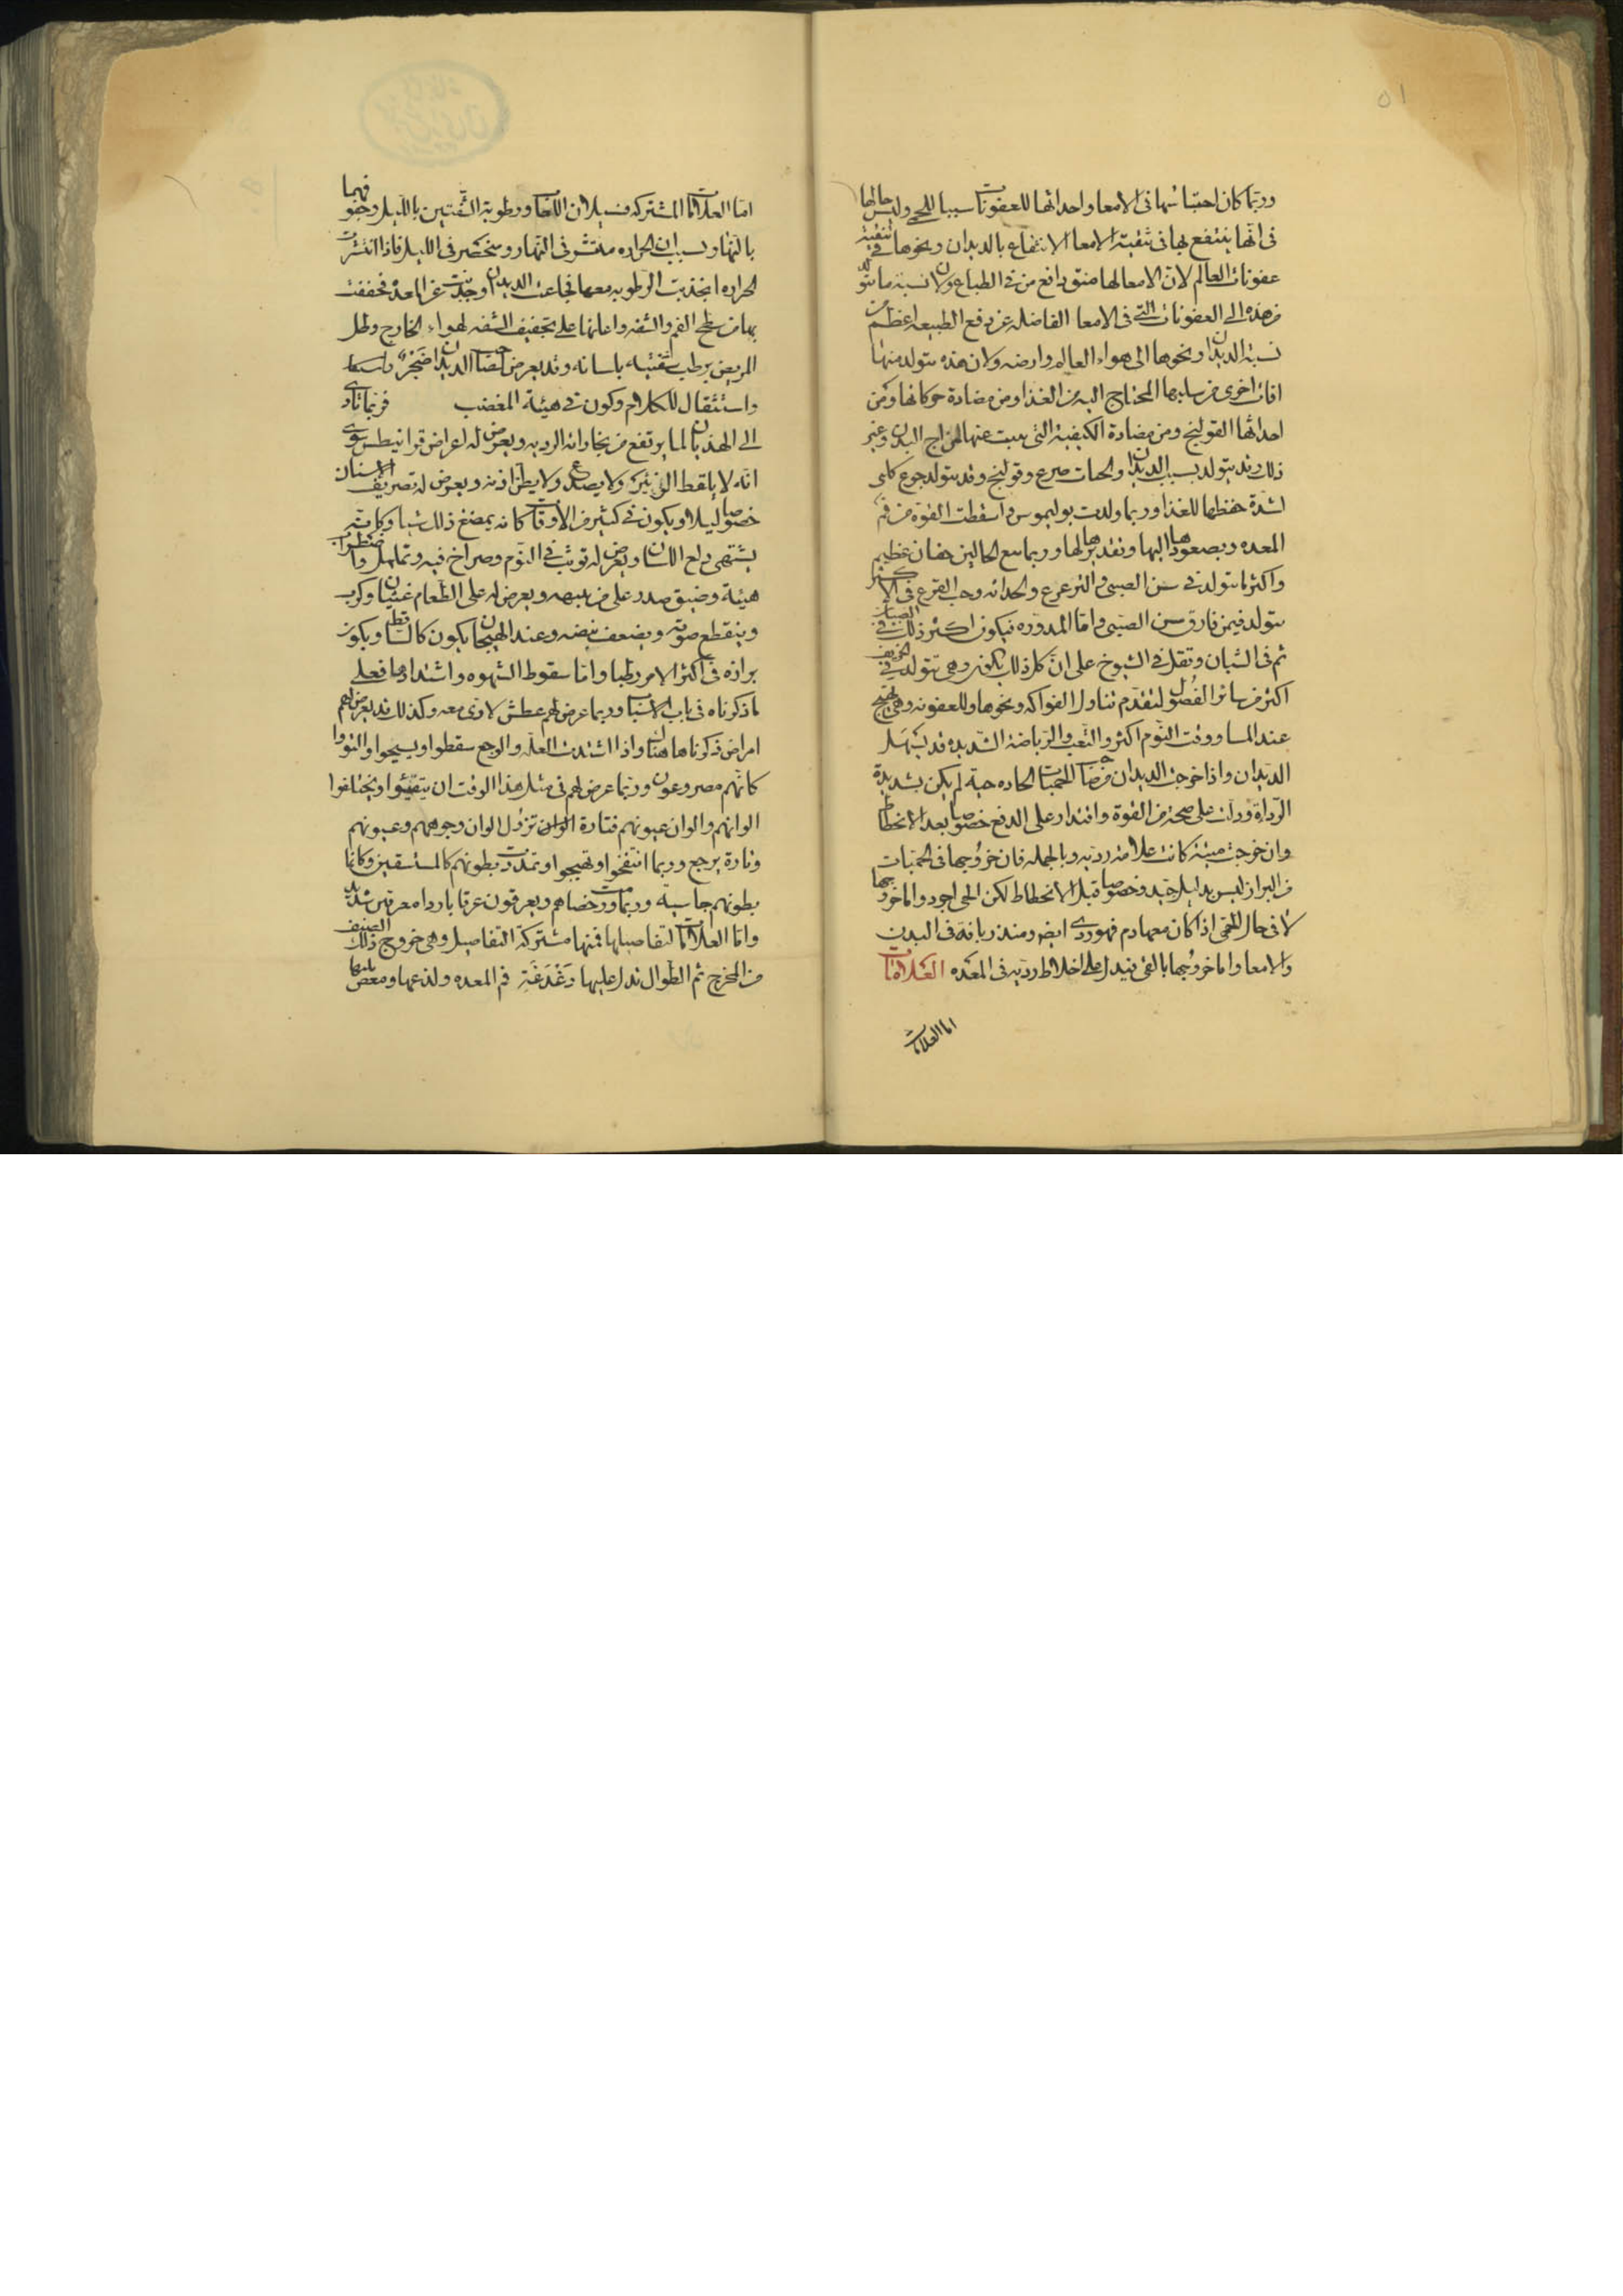 ٥١
وربما كان احتباسها في الامعا واحداثها للعفونات سببا للحمى وليس حالها
في انها ينتفع بها في تنقية الامعا الانتفاع بالديدان ونحوها في تنقية
عفونات العالم لان الامعا لها منق دافع من الطباع ولان نسبة ما تولد
من هذه الى العفونات التي في الامعا الفاضله عن دفع الطبيعه اعظم من
نسبة الديدان ونحوها الى هواء العالم وارضه ولان هذه يتولد منها
افات اخرى من سلبها المحتاج اليه من الغذا ومن مضادة حركاتها ومن
احداثها القولنج ومن مضادة الكيفية التي ينبث عنها لمزاج البدن وغير
ذلك وقد يتولد بسبب الديدان والحيات صرع وقولنج وقد يتولد جوع كلبى
لشدة خطفها للغذا وربما ولدت بوليموس واسقطت القوة من فم
المعده وبصعودها اليها وتقذيرها لها وربما تبع الحالين خفقان عظيم
واكثر ما تتولد في سن الصبى والترعرع والحداثه وحب القرع في الاكثر
يتولد فيمن فارق سن الصبى واما المدوره فيكون اكثر ذلك في الصبيان
ثم في الشبان وتقل في الشيوخ على ان كل ذلك يكون وهي تتولد في الخريف
اكثر من سائر الفصول لتقدم تناول الفواكه ونحوها وللعفونه وهي تهيج
عند المسا ووقت النوم اكثر والتعب والرياضة الشديده قد يسهل
الديدان واذا خرجت الديدان من صاحب الحميات الحاده حية لم يكن بشديدة
الرداة ودلت على صحة من القوة واقتدار على الدفع خصوصا بعد الانحطاط
وان خرجت ميتة كانت علامة رديه وبالجمله فان خروجها في الحميات
من البراز ليس بدليل جيد وخصوصا قبل الانحطاط لكن الحي اجود واما خروجها
لا في حال الحمى اذا كان معها دم فهو ردى ايضا ومنذر بافة في البدن
والامعا واما خروجها بالقى فيدل على اخلاط رديه في المعده العلامات
اما العلامات
اما العلامات المشتركه فسيلان اللعاب ورطوبة الشفتين بالليل وجفوفهما
بالنهار بسبب ان الحراره منتشر في النهار ومنحصر في الليل فاذا انتشرت
الحراره انجذبت الرطوبه معها فجاعت الديدان وجذبت من المعدة فجففت
بها من سطح الفم والشفه واعانها على تجفيف الشفه الهواء الخارج وظل
المريض يرطب شفتيه بلسانه وقد يعرض لصاحب الديدان ضجر
واستثقال للكلام وكون في هيئة المغضب فربما تادى
الى الهذيان لما يرتفع من بخاراته الرديه ويعرض له اعراض قرانيطس سوى
انه لا يلقط الزئبر ولا يصدع ولا يطن اذنه ويعرض له تصريف الاسنان
خصوصا ليلا ويكون في كثير من الاوقات كانه يمضغ ذلك شيا وكانه
يشتهي دلع اللسان ويعرض له توثب في النوم وصراخ فيه وتململ واضطراب
هيئة وضيق صدر على من ينبهه ويعرض له على الطعام غثيان وكرب
وينقطع صوته ويضعف نبضه وعند الهيجان يكون كالساقط ويكون
برازه في اكثر الامر رطبا واما سقوط الشهوه واشتدادها فعلى
ما ذكرناه في باب الاسباب وربما عرض لهم عطش لا روى معه وكذلك قد يعرض لهم
امراض ذكرناها هناك واذا اشتدت العله والوجع سقطوا وتشنجوا والتووا
كانهم مصروعون وربما عرض لهم في مثل هذا الوقت ان يتقيئوا ويختلفوا
الوانهم والوان عيونهم فتارة تزول الوان وجوههم وعيونهم
وتارة يرجع وربما انتفخوا وتهيجوا وتمددت بطونهم كالمستسقين وكانما
بطونهم جاسية وربما ورمت خصاهم ويعرقون عرقا باردا مع نتن شديد
واما العلامات لتفاصيلها فمنها مشتركة التفاصيل وهي خروج ذلك الصنف
من المخرج ثم الطوال تدل عليها دغدغة فم المعده ولذعها ومغص يليها